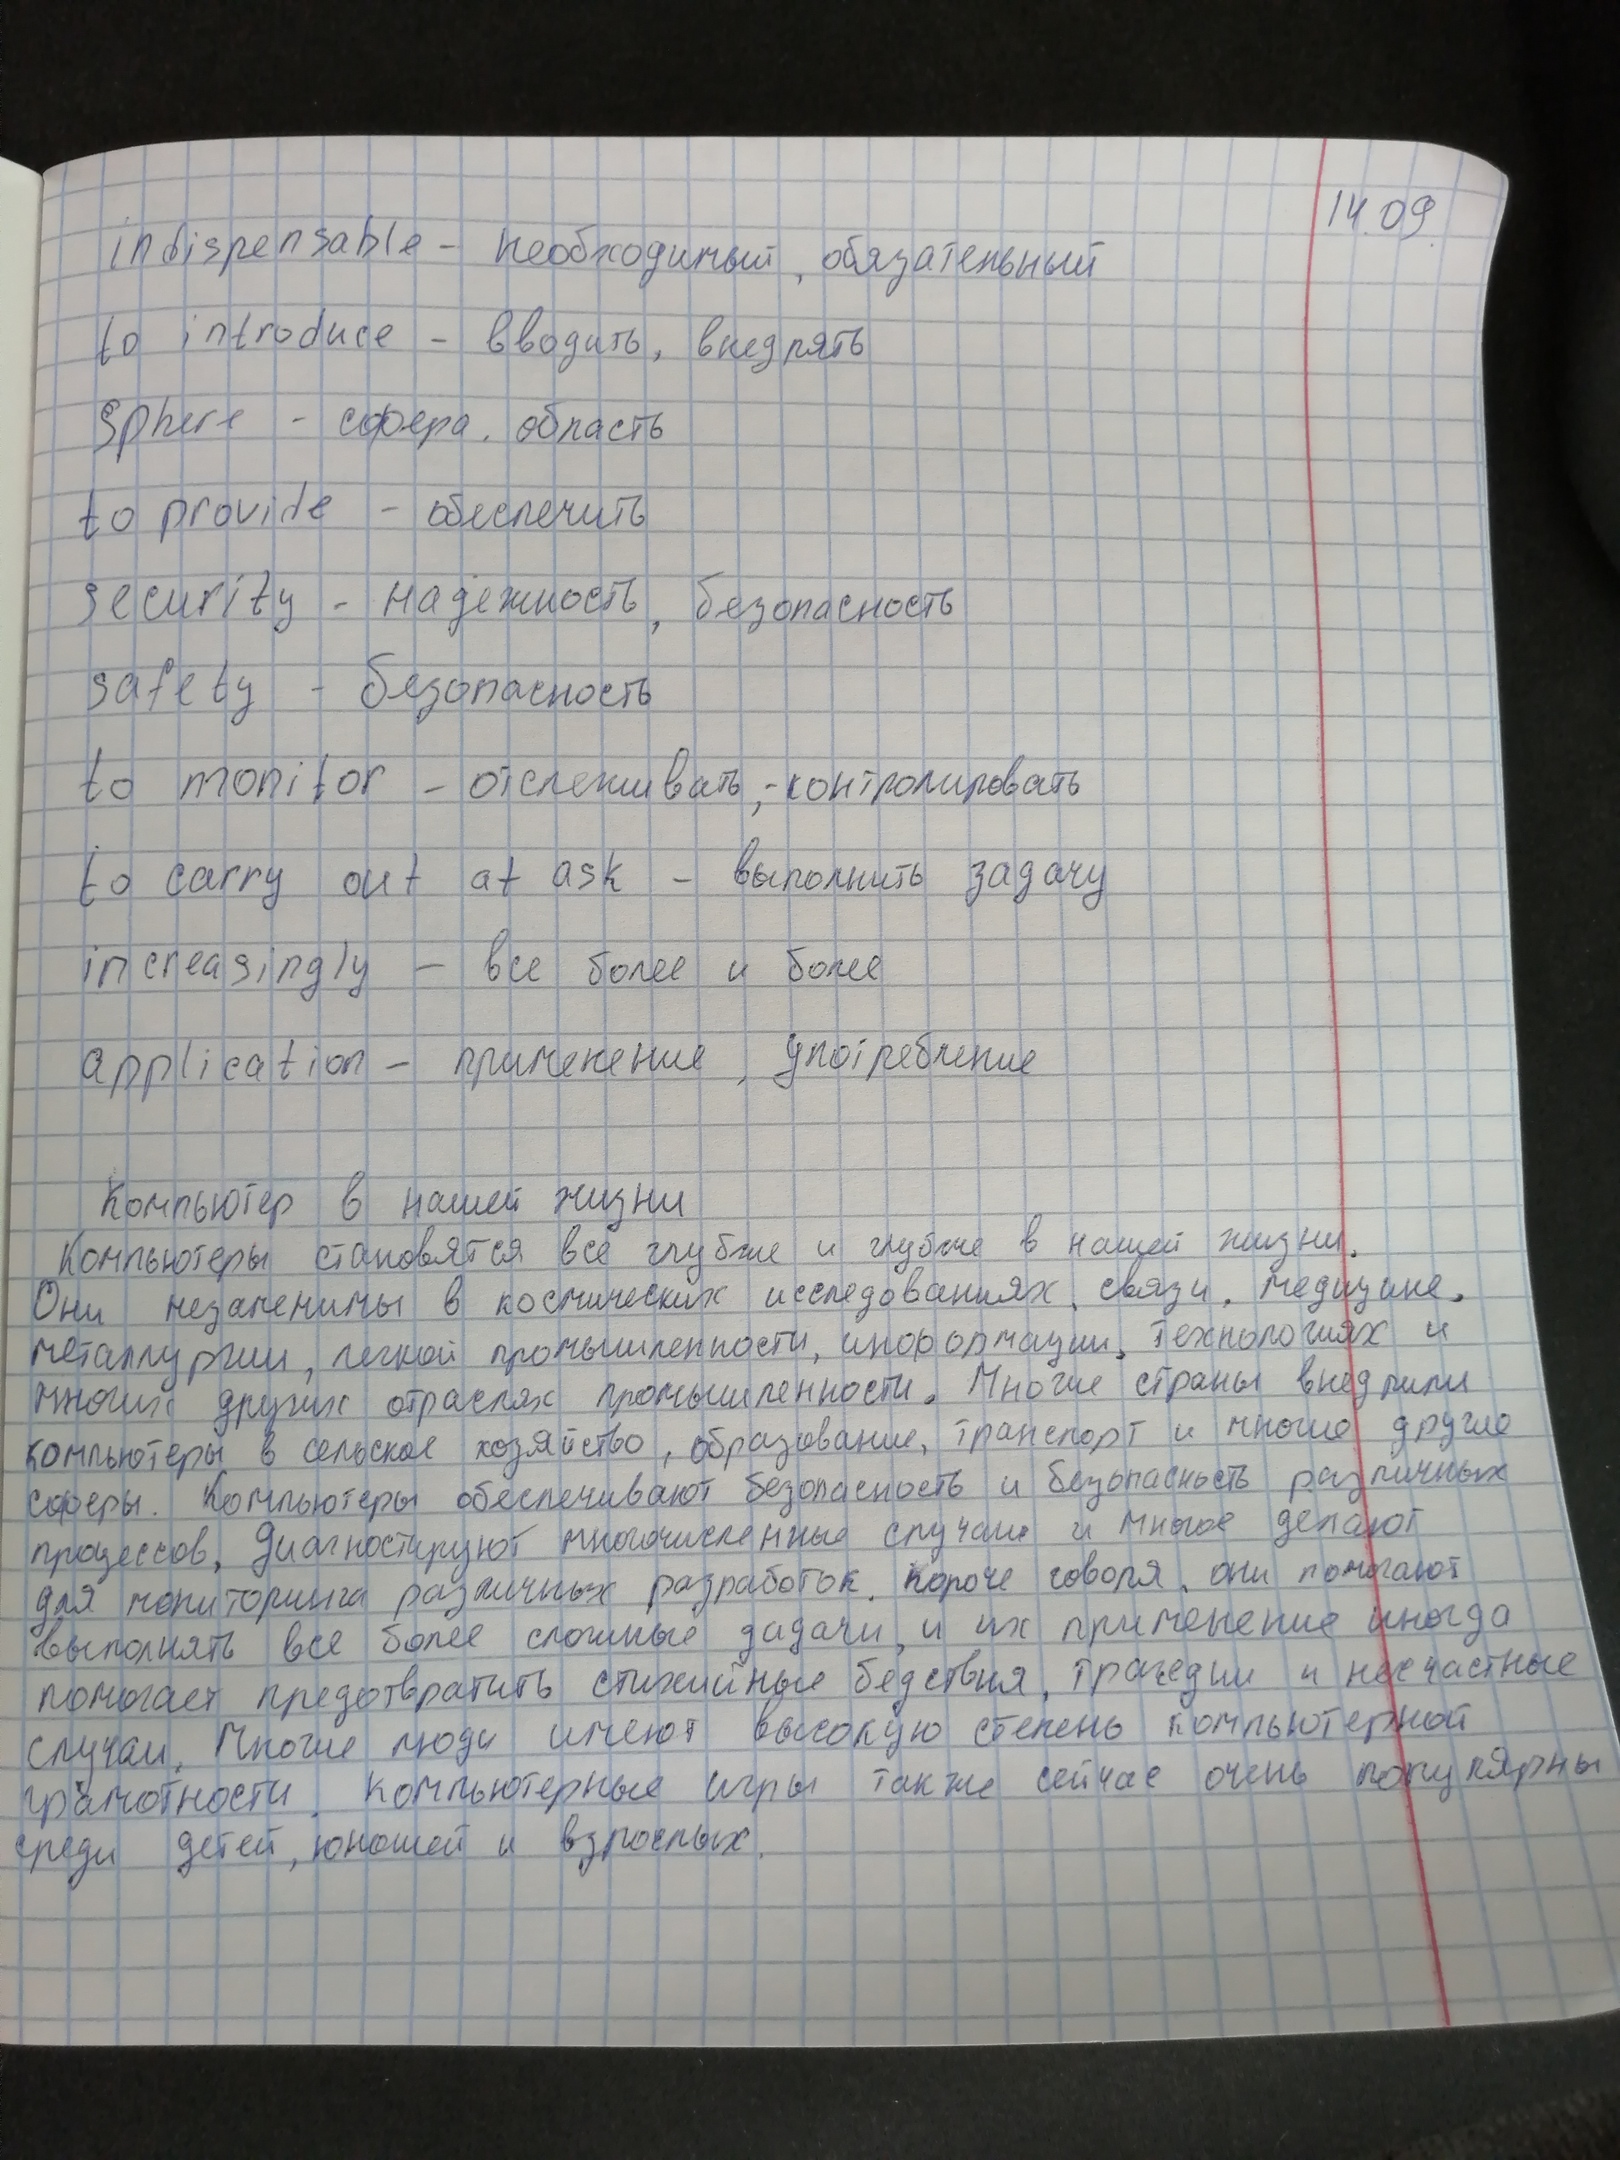 14.09.
indispensable - необходимый, обязательный
to introduce - вводить, внедрять
sphere - сфера, область
to provide - обеспечить
security - надежность, безопасность
safety - безопасность
to monitor - отслеживать, - контролировать
to carry out at ask - выполнить задачу
increasingly - все более и более
application - применение, употребление
Компьютер в нашей жизни
Компьютеры становятся все глубже и глубже в нашей жизни.
Они незаменимы в космических исследованиях, связи, медицине,
металлургии, легкой промышленности, информации, технологиях и
многих других отраслях промышленности. Многие страны внедрили
компьютеры в сельское хозяйство, образование, транспорт и многие другие
сферы. Компьютеры обеспечивают безопасность и безопасность различных
процессов, диагностируют многочисленные случаи и многое делают
для мониторинга различных разработок. Короче говоря, они помогают
выполнять все более сложные задачи, и их применение иногда
помогает предотвратить стихийные бедствия, трагедии и несчастные
случаи. Многие люди имеют высокую степень компьютерной
грамотности. Компьютерные игры также сейчас очень популярны
среди детей, юношей и взрослых.